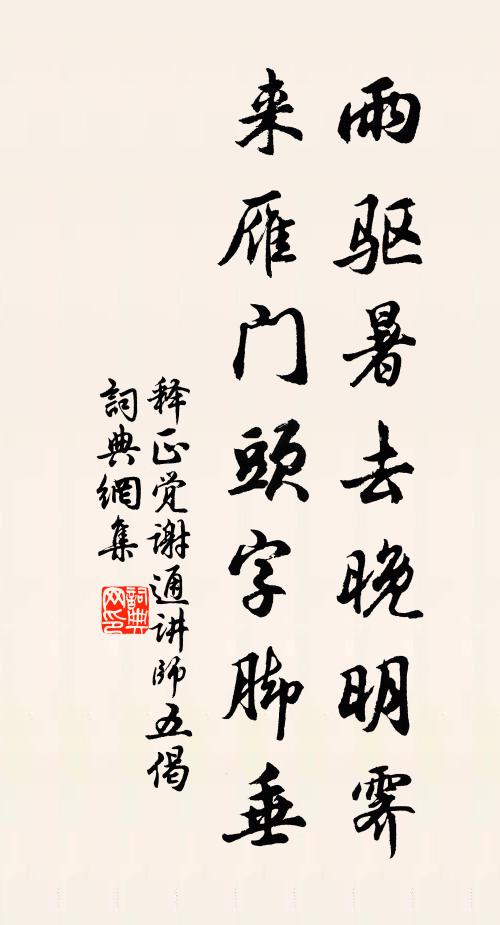 雨驱暑去晚明霁
来雁门頭字脚垂
释正觉谢通讲师五偈
詞典網集
詞典网印